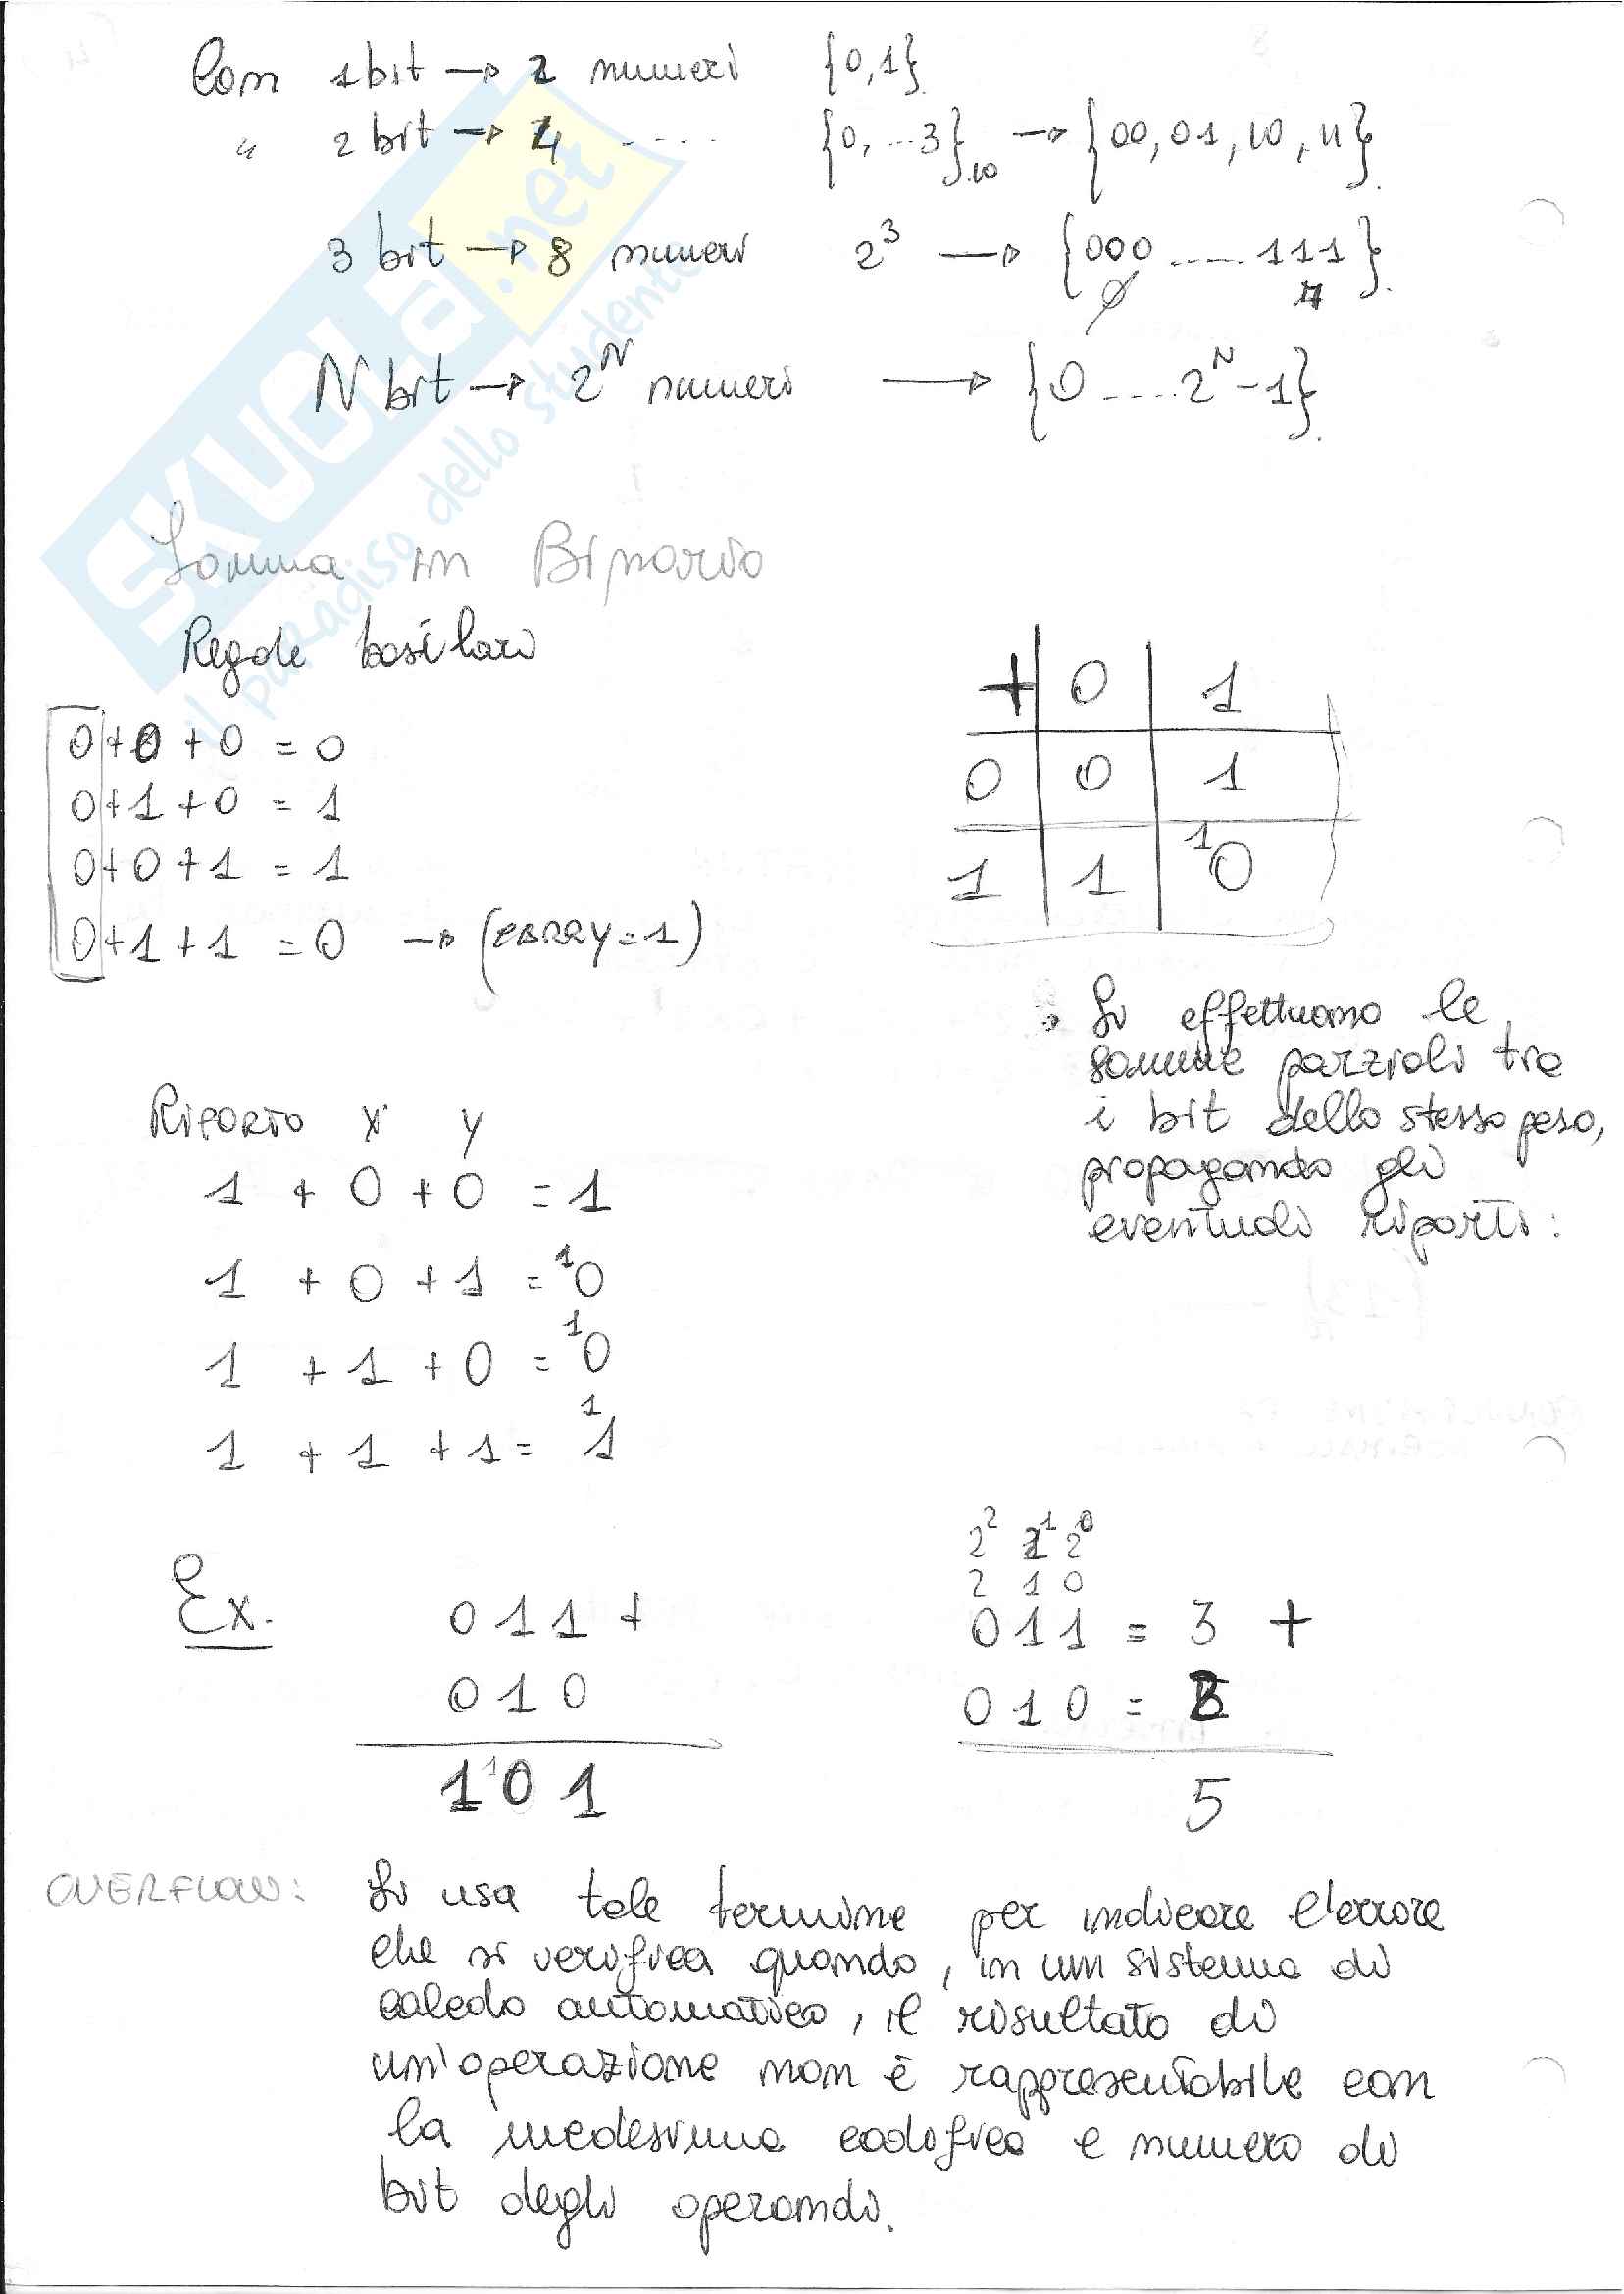 Con 1 bit → 2 numeri {0,1}
" 2 bit → 4 .... {0,...3}₁₀ → {00,01,10,11}
3 bit → 8 numeri 2³ → {000 ..... 111}
Ø 7
N bit → 2ᴺ numeri → {0.....2ᴺ-1}
SKUOLA.net
il paradiso dello studente
Somma in Binario
Regole basilari
0+0+0 = 0
0+1+0 = 1
0+0+1 = 1
0+1+1 = 0 → (CARRY=1)
+ | 0 | 1
0 | 0 | 1
1 | 1 | ¹0
Si effettuano le
somme parziali tra
i bit dello stesso peso,
propagando gli
eventuali riporti:
RIPORTO X Y
1 + 0 + 0 = 1
1 + 0 + 1 = ¹0
1 + 1 + 0 = ¹0
1 + 1 + 1 = ¹1
Ex.
011 +
010
1¹01
2² 2¹ 2⁰
2 1 0
011 = 3 +
010 = 2
5
OVERFLOW: Si usa tale termine per indicare l'errore
che si verifica quando, in un sistema di
calcolo automatico, il risultato di
un'operazione non è rappresentabile con
la medesima codifica e numero di
bit degli operandi.